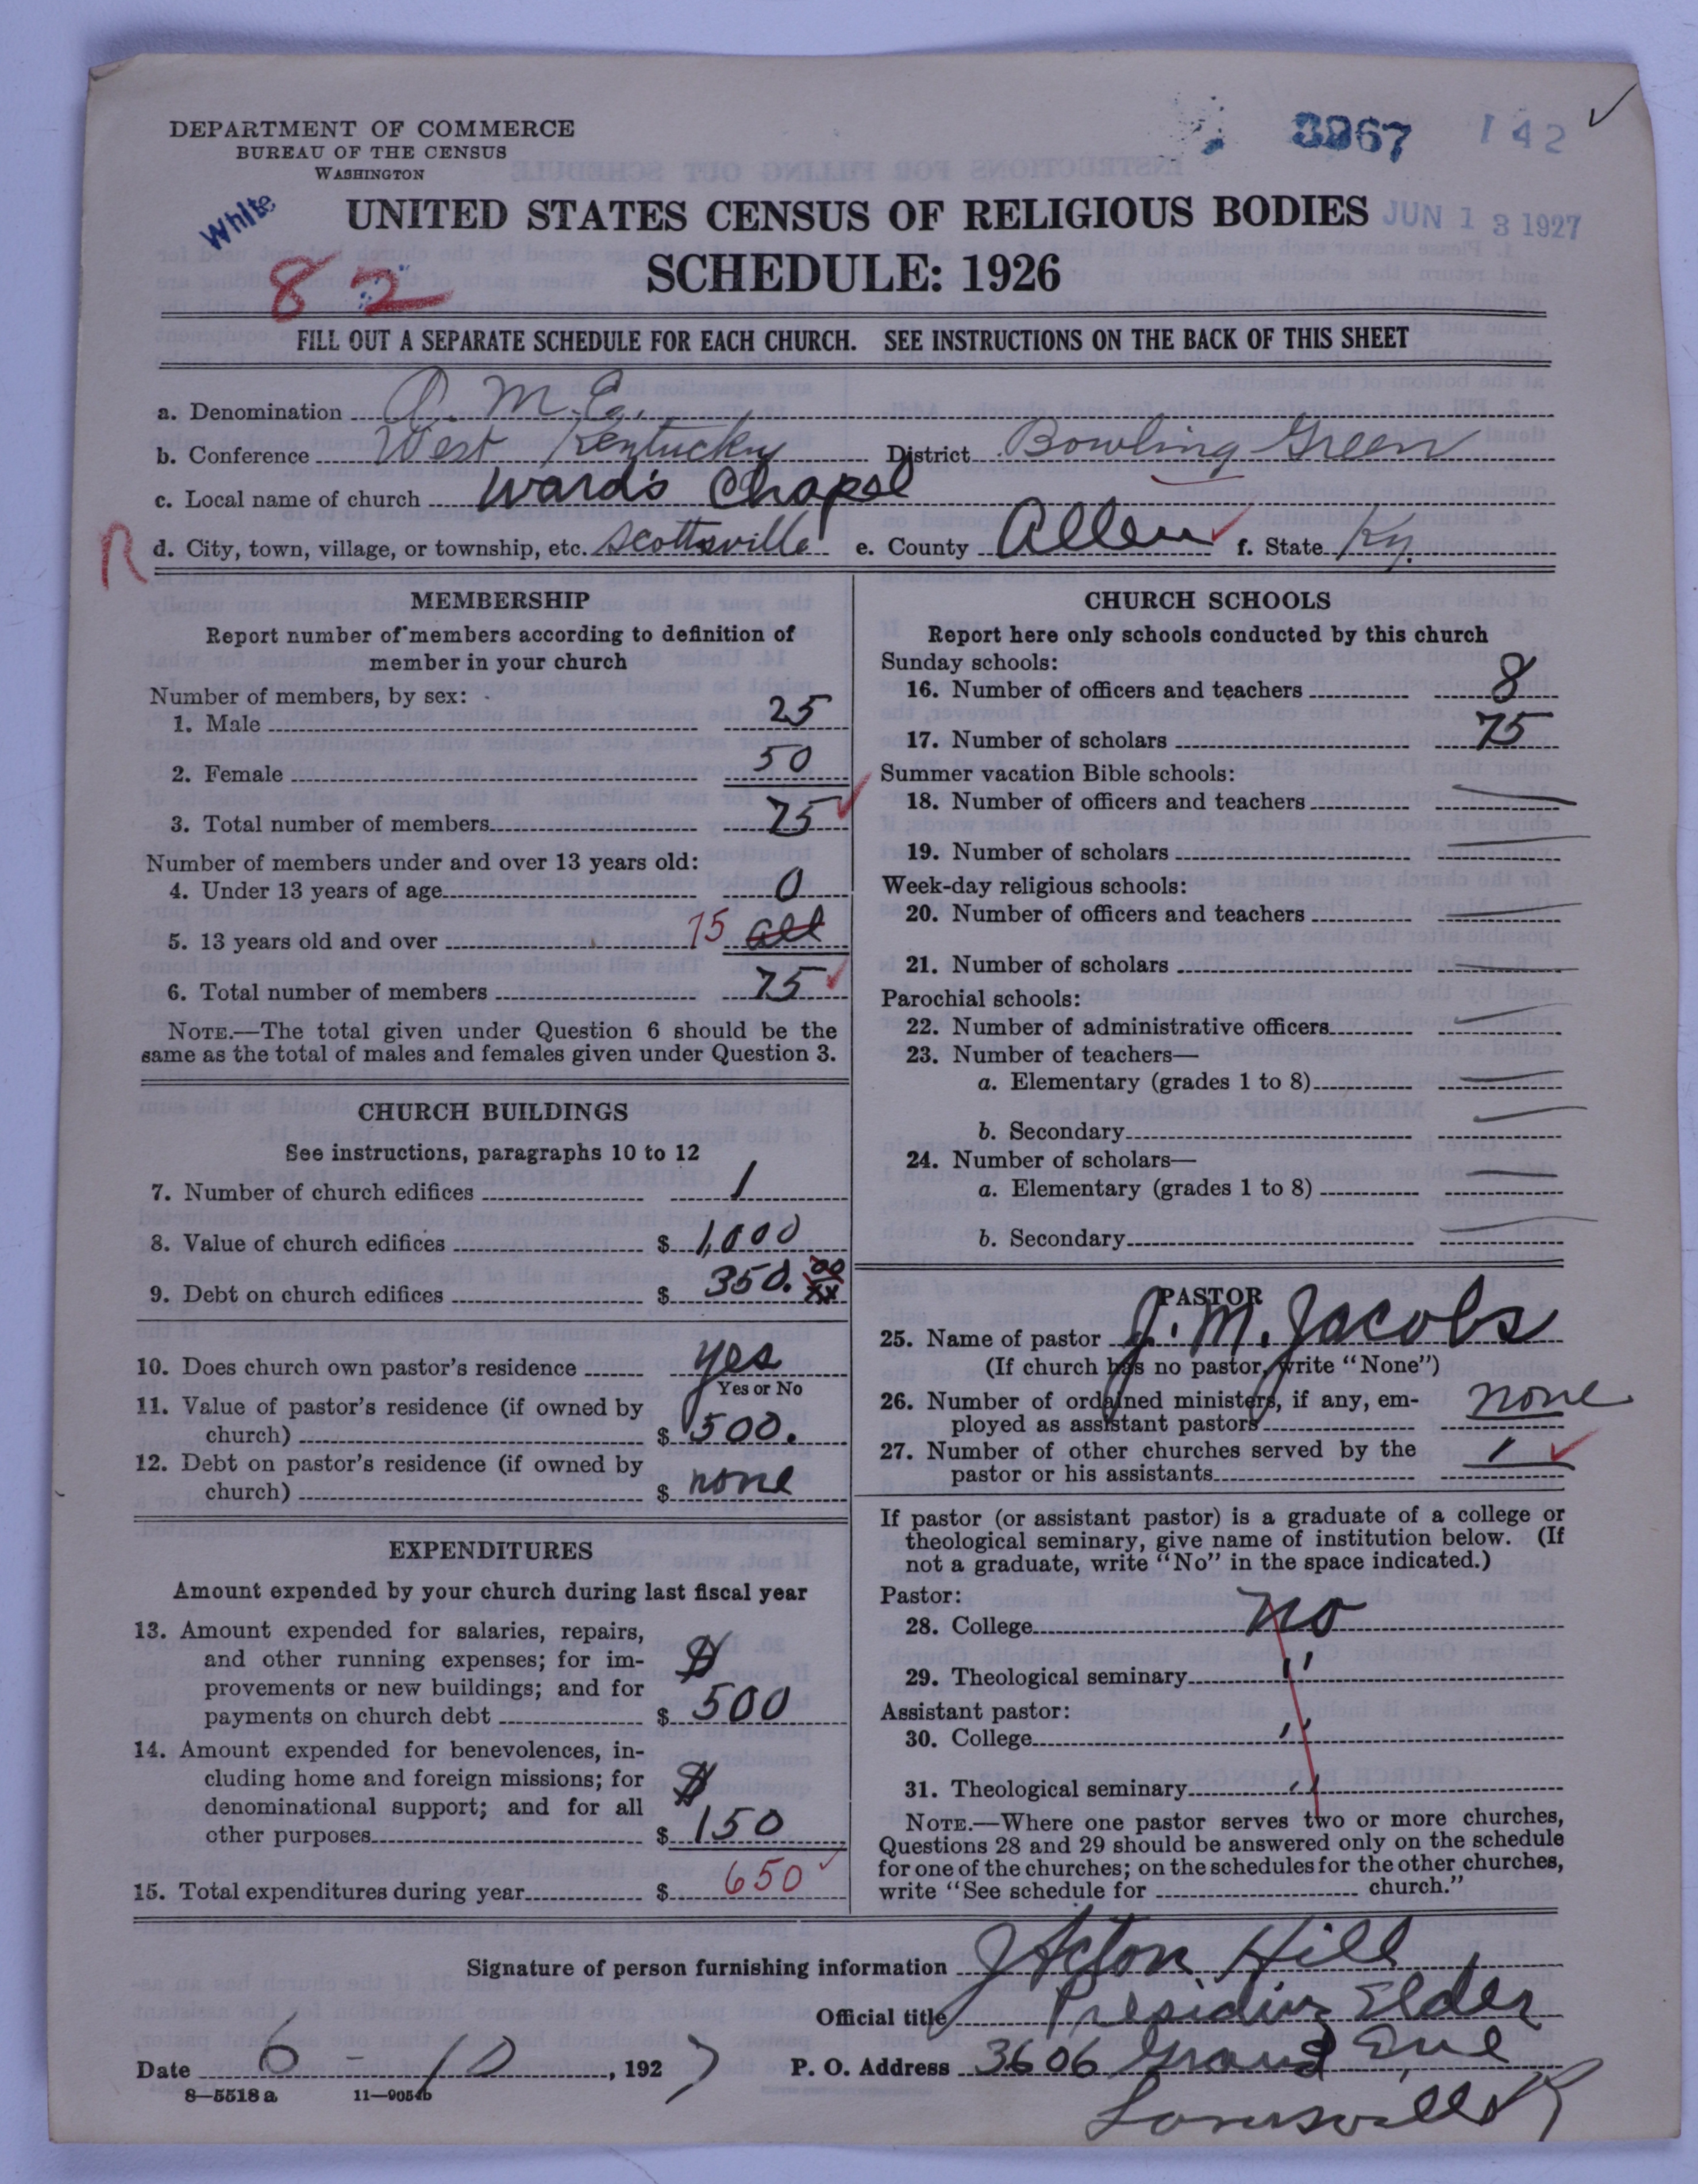 3967 142 ✓
DEPARTMENT OF COMMERCE
BUREAU OF THE CENSUS
WASHINGTON
White
UNITED STATES CENSUS OF RELIGIOUS BODIES
JUN 13 1927
SCHEDULE: 1926
82
FILL OUT A SEPARATE SCHEDULE FOR EACH CHURCH. SEE INSTRUCTIONS ON THE BACK OF THIS SHEET
a. Denomination A. M. E.
b. Conference West Kentucky District Bowling Green
c. Local name of church Ward's Chapel
R d. City, town, village, or township, etc. Scottsville e. County Allen ✓ f. State Ky.
MEMBERSHIP
Report number of members according to definition of
member in your church
Number of members, by sex:
1. Male 25
2. Female 50
3. Total number of members 75 ✓
Number of members under and over 13 years old:
4. Under 13 years of age 0
5. 13 years old and over 75 all
6. Total number of members 75 ✓
NOTE.—The total given under Question 6 should be the
same as the total of males and females given under Question 3.
CHURCH BUILDINGS
See instructions, paragraphs 10 to 12
7. Number of church edifices 1
8. Value of church edifices $ 1,000
9. Debt on church edifices $ 350. 00/xx
10. Does church own pastor's residence yes
Yes or No
11. Value of pastor's residence (if owned by
church) $ 500.
12. Debt on pastor's residence (if owned by
church) $ none
EXPENDITURES
Amount expended by your church during last fiscal year
13. Amount expended for salaries, repairs,
and other running expenses; for im-
provements or new buildings; and for $
payments on church debt $ 500
14. Amount expended for benevolences, in-
cluding home and foreign missions; for $
denominational support; and for all
other purposes $ 150
15. Total expenditures during year $ 650 ✓
CHURCH SCHOOLS
Report here only schools conducted by this church
Sunday schools:
16. Number of officers and teachers 8
17. Number of scholars 75
Summer vacation Bible schools:
18. Number of officers and teachers —
19. Number of scholars —
Week-day religious schools:
20. Number of officers and teachers —
21. Number of scholars —
Parochial schools:
22. Number of administrative officers —
23. Number of teachers—
a. Elementary (grades 1 to 8) —
b. Secondary —
24. Number of scholars—
a. Elementary (grades 1 to 8) —
b. Secondary —
PASTOR
25. Name of pastor J. M. Jacobs
(If church has no pastor, write "None")
26. Number of ordained ministers, if any, em-
ployed as assistant pastors none
27. Number of other churches served by the
pastor or his assistants 1 ✓
If pastor (or assistant pastor) is a graduate of a college or
theological seminary, give name of institution below. (If
not a graduate, write "No" in the space indicated.)
Pastor:
28. College no
29. Theological seminary ''
Assistant pastor:
30. College ''
31. Theological seminary ''
NOTE.—Where one pastor serves two or more churches,
Questions 28 and 29 should be answered only on the schedule
for one of the churches; on the schedules for the other churches,
write "See schedule for church."
Signature of person furnishing information Hill
Official title Presiding Elder
Date 6 - 10, 1927 P. O. Address 3606 Grand Ave
8—5518 a 11—9054b
Louisville Ky